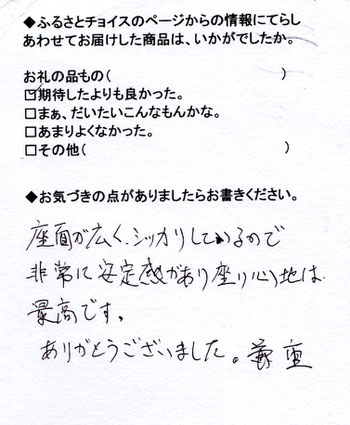 ◆ふるさとチョイスのページからの情報にてらし
あわせてお届けした商品は、いかがでしたか。
お礼の品もの( )
☑期待したよりも良かった。
□まぁ、だいたいこんなもんかな。
□あまりよくなかった。
□その他( )
◆お気づきの点がありましたらお書きください。
座面が広く、シッカリしているので
非常に安定感があり座り心地は
最高です。
ありがとうございました。